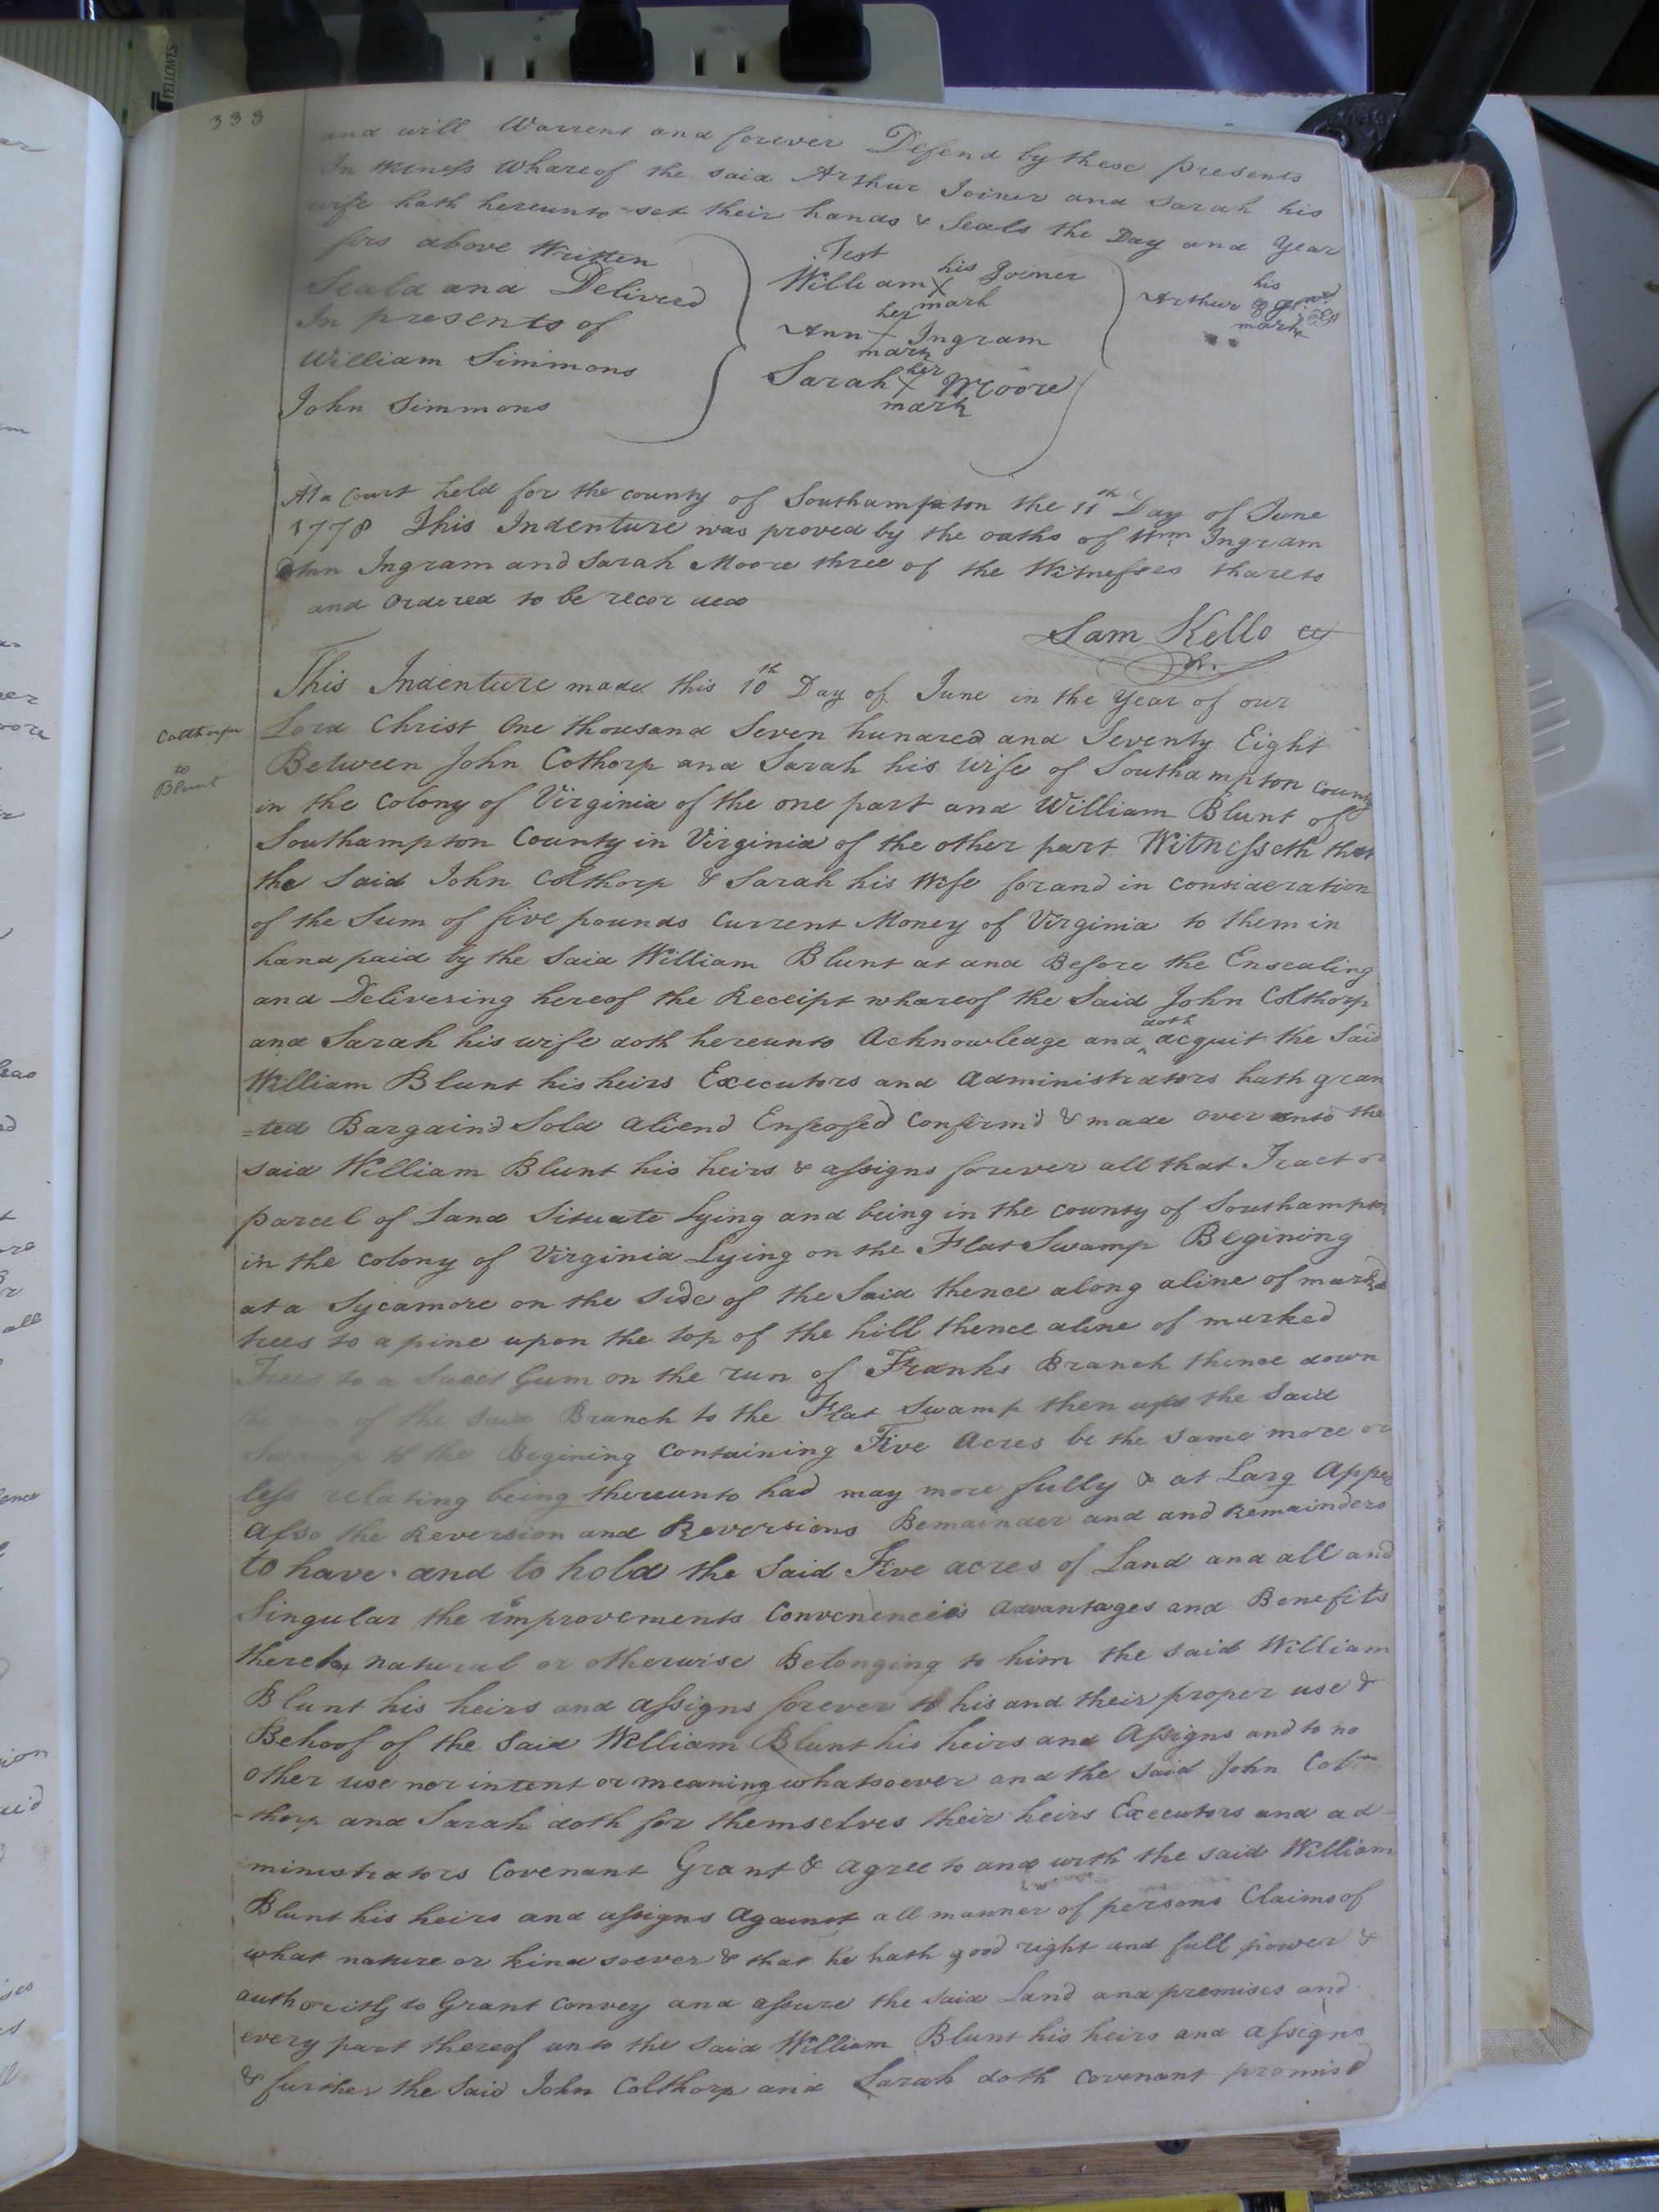 FELLOWES
333
and will Warrent and forever Defend by these presents
In Witness Whareof the said Arthur Joiner and Sarah his
wife hath hereunto set their hands & Seals the Day and Year
firs above Written
Seald and Deliverd
In presents of
William Simmons
John Simmons
Test
William X Joiner
his
mark
her
Ann X Ingram
mark
her
Sarah X Moore
mark
his
Arthur
mark
At a Court held for the county of Southampton the 11th Day of June
1778 This Indenture was proved by the oaths of Wm Ingram
Ann Ingram and Sarah Moore three of the Witnesses thareto
and Ordered to be recor ded
Sam Kello cc
Calthorpe
to
Blunt
This Indenture made this 10th Day of June in the Year of our
Lord Christ One thousand Seven hundred and Seventy Eight
Between John Cothorp and Sarah his Wife of Southampton County
in the Colony of Virginia of the one part and William Blunt of
Southampton County in Virginia of the other part Witnesseth that
the Said John Colthorp & Sarah his Wife for and in Consideration
of the Sum of five pounds Current Money of Virginia to them in
hand paid by the Said William Blunt at and Before the Ensealing
and Delivering hereof the Receipt whareof the Said John Colthorp
and Sarah his wife doth hereunto Acknowledge and doth acquit the Said
William Blunt his heirs Executors and Administrators hath gran
=ted Bargain'd Sold aliend Enfeofed Confirm'd & made over unto the
said William Blunt his heirs & assigns forever all that Tract or
parcel of Land Situate Lying and being in the County of Southampton
in the Colony of Virginia Lying on the Flat Swamp Begining
at a Sycamore on the Side of the Said thence along aline of markd
trees to a pine upon the top of the hill thence aline of marked
Trees to a Sweet Gum on the run of Franks Branch thence down
the run of the Said Branch to the Flat Swamp then up the Said
Swamp to the Begining Containing Five Acres be the Same more or
less relating being thereunto had may more fully & at Larg Appea
Also the Reversion and Reversions Remainder and and Remainders
to have and to hold the Said Five acres of Land and all and
Singular the Improvements Conveniencies Advantages and Benefits
thereby natural or otherwise Belonging to him the Said William
Blunt his heirs and assigns forever to his and their proper use &
Behoof of the Said William Blunt his heirs and Assigns and to no
other use nor intent or meaning whatsoever and the Said John Col-
-thorp and Sarah doth for themselves their heirs Executors and ad-
ministrators Covenant Grant & agree to and with the said William
Blunt his heirs and assigns Against all manner of persons Claims of
what nature or kind soever & that he hath good right and full power &
authority to Grant Convey and assure the Said Land and premises and
every part thereof unto the Said William Blunt his heirs and assigns
& further the Said John Colthorp and Sarah doth Covenant promisd